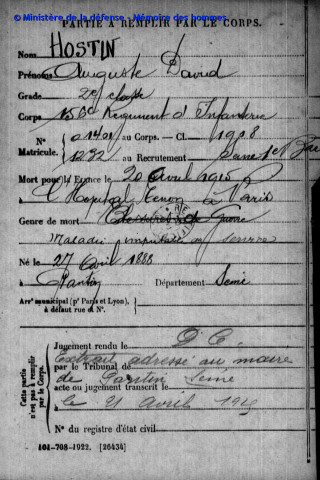 © Ministère de la défense - Mémoire des hommes
PARTIE À REMPLIR PAR LE CORPS.
Nom HOSTIN
Prénoms Auguste David
Grade 2e classe
Corps 156e Régiment d'Infanterie
N° au Corps. — Cl. 1908
Matricule. 1232 au Recrutement Seine 1er Bau
Mort pour la France le 20 avril 1915
à l'Hôpital Tenon à Paris
Genre de mort Blessures de Guerre
Maladie imputable au service
Né le 27 avril 1888
à Pantin Département Seine
Arrt municipal (pr Paris et Lyon),
à défaut rue et N°.
Cette partie n'est pas à remplir par le Corps.
Jugement rendu le D. C.
par le Tribunal de Extrait adressé au maire
de Pantin Seine
acte ou jugement transcrit le
le 21 avril
N° du registre d'état civil
101-708-1922. [26434]